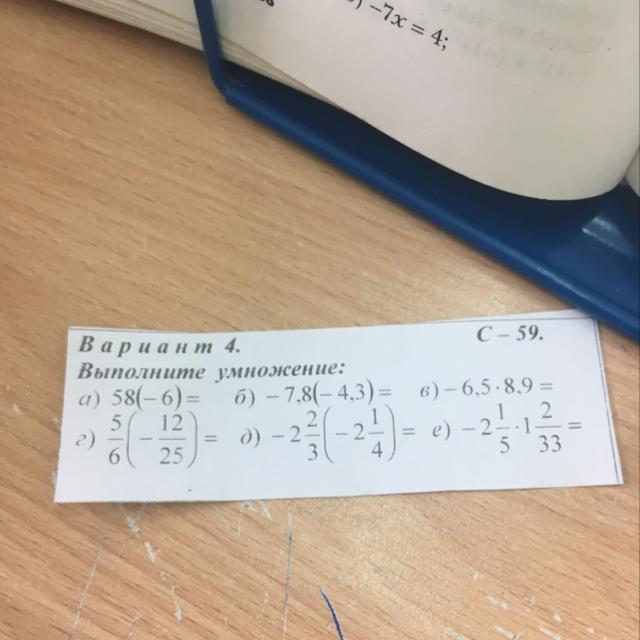 ) −7x = 4;
Вариант 4. С – 59.
Выполните умножение:
а) 58(− 6) = б) − 7,8(− 4,3) = в) − 6,5 · 8,9 =
г) 5/6 (− 12/25) = д) − 2 2/3 (− 2 1/4) = е) − 2 1/5 · 1 2/33 =